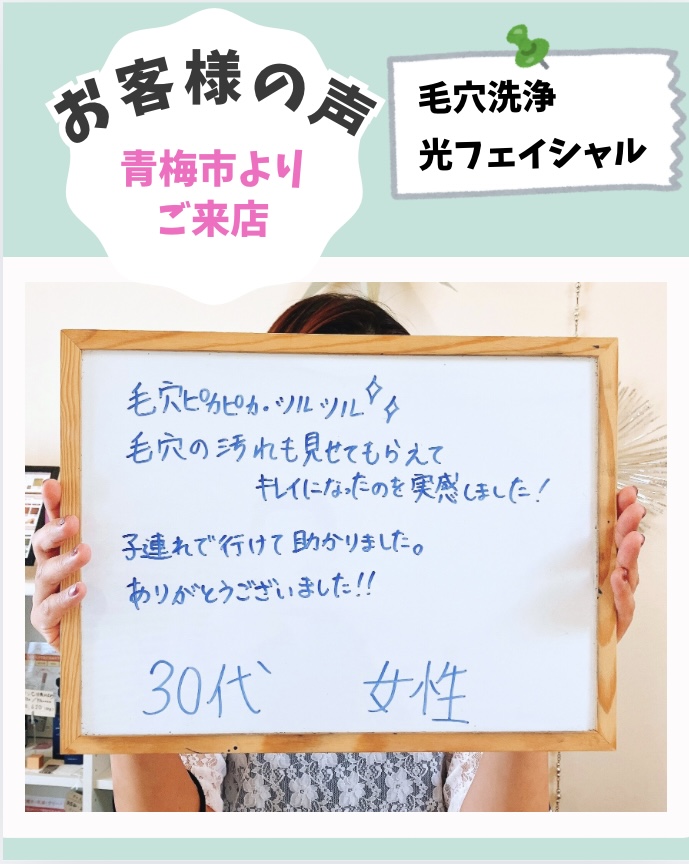 お客様の声
青梅市より
ご来店
毛穴洗浄
光フェイシャル
毛穴ピカピカ・ツルツル
毛穴の汚れも見せてもらえて
キレイになったのを実感しました!
子連れで行けて助かりました。
ありがとうございました!!
30代 女性